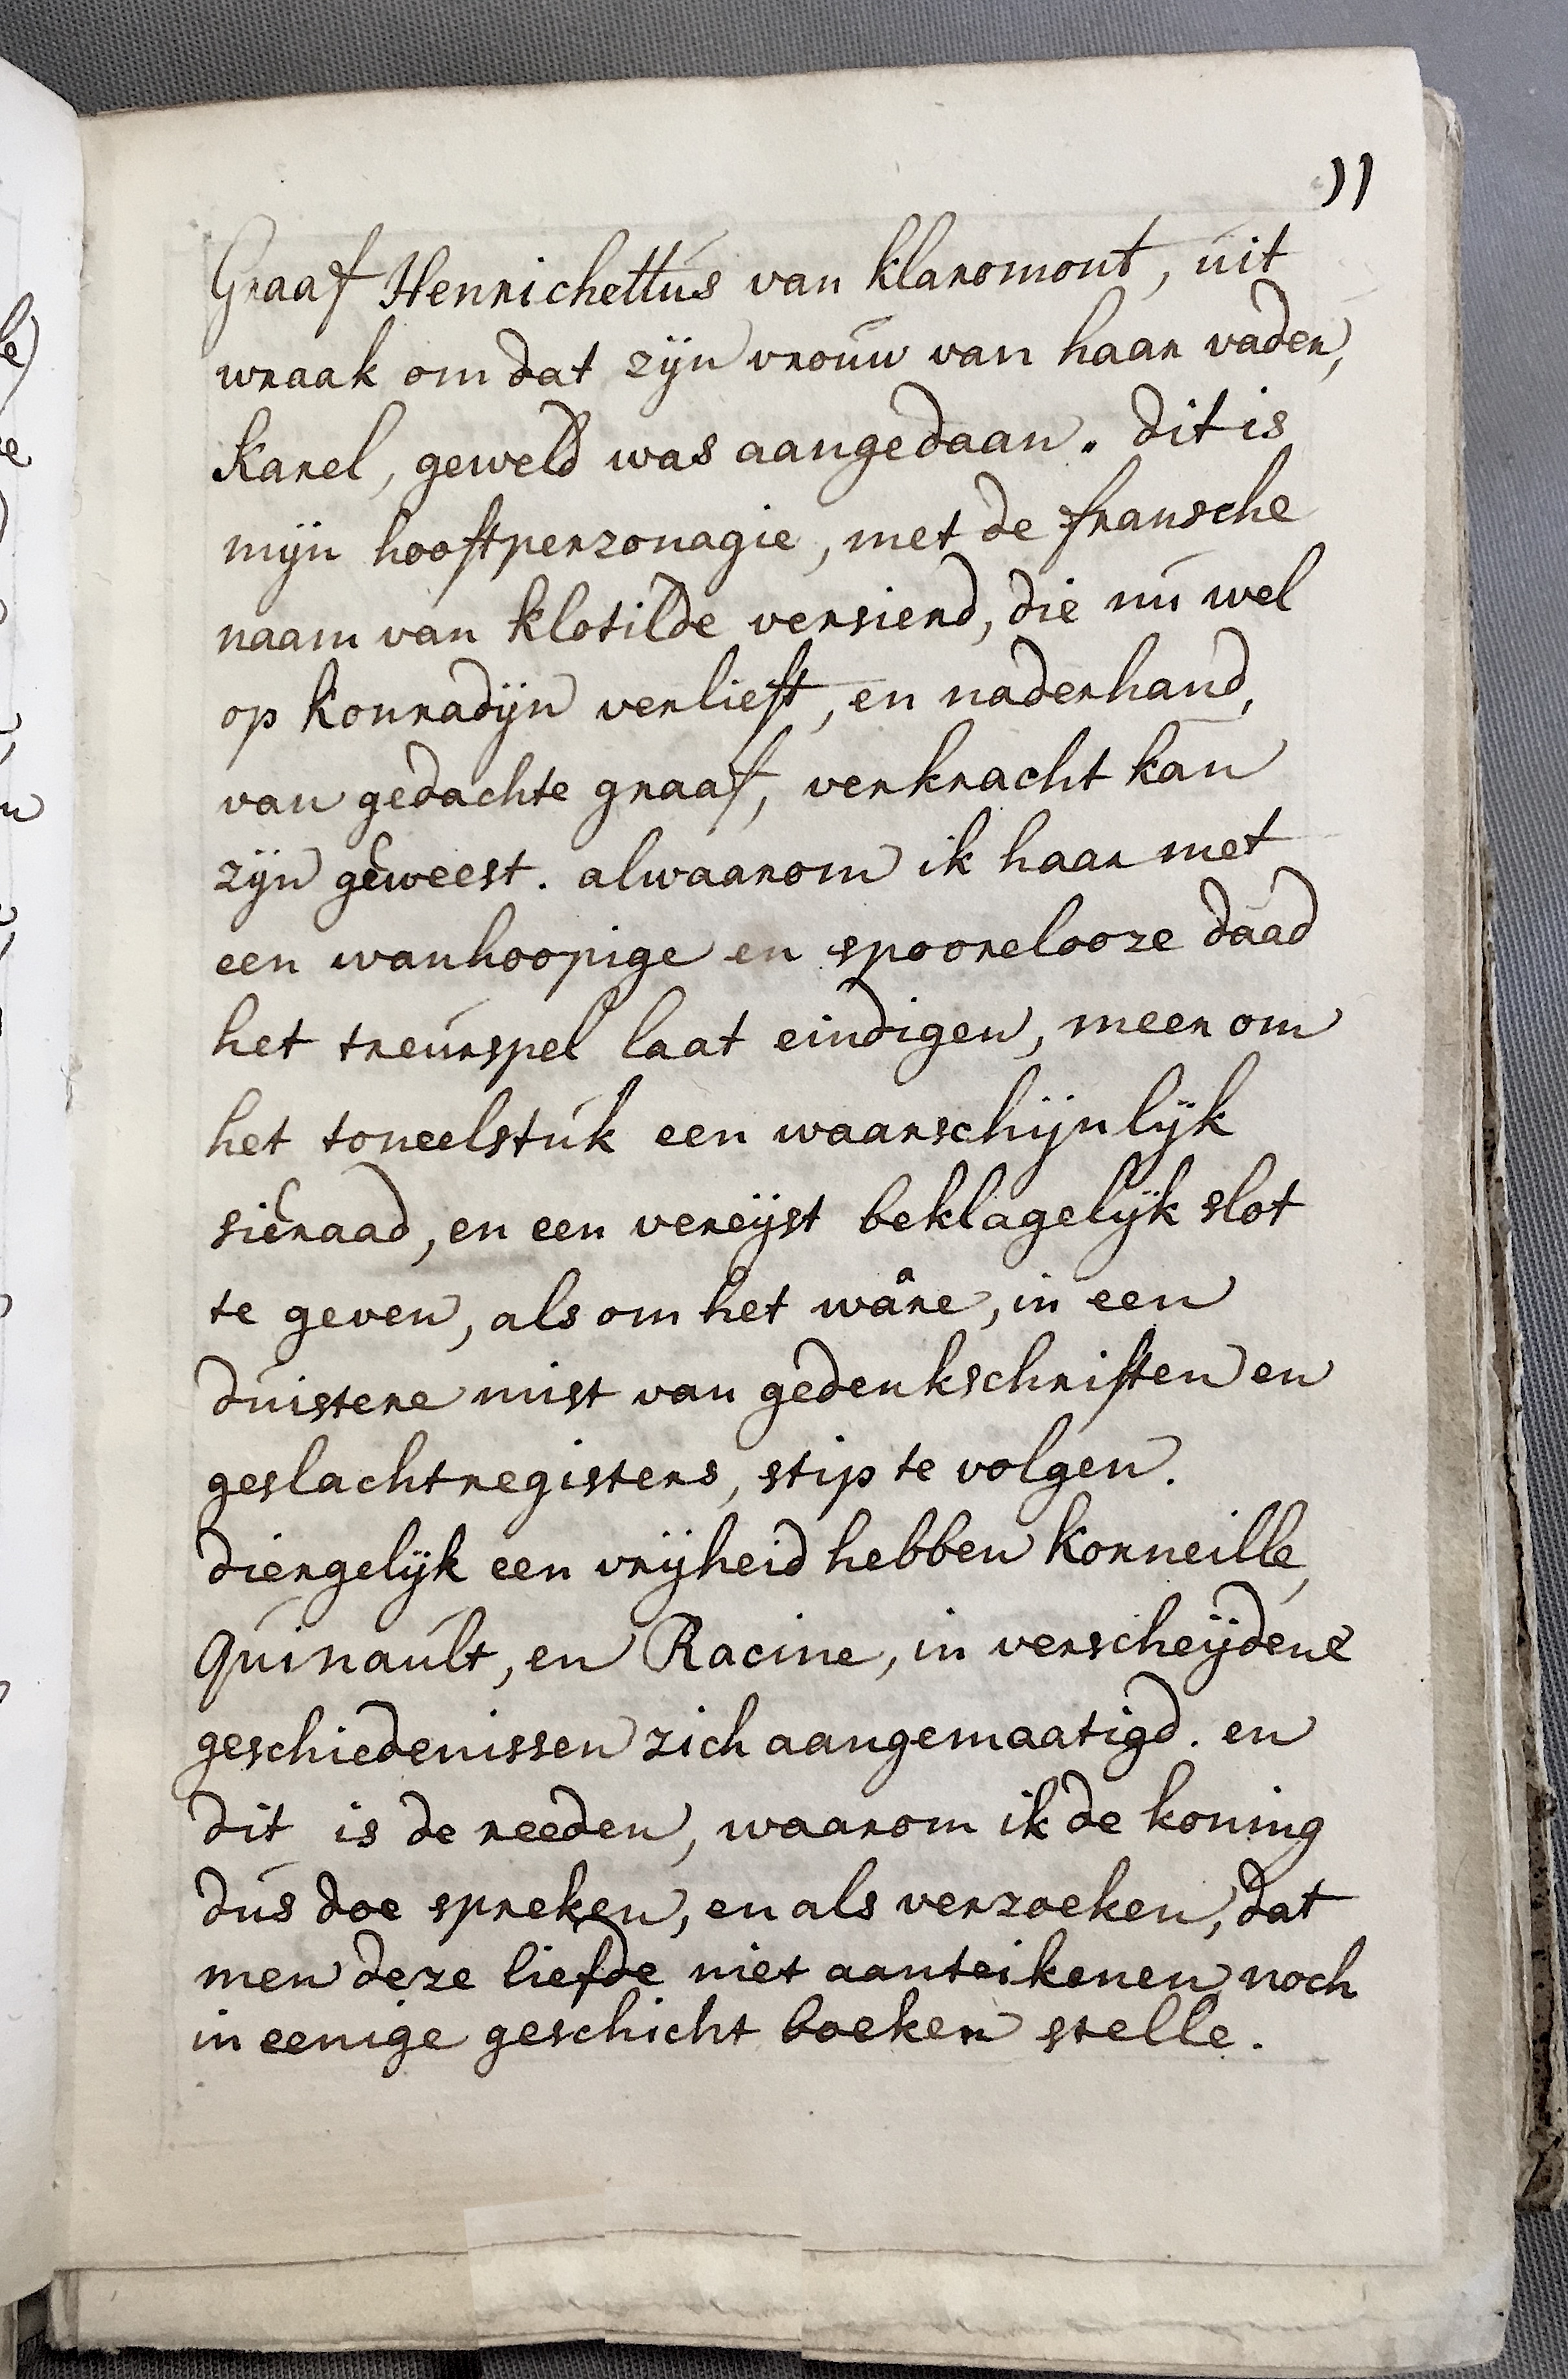 11
Graaf Henrichettus van klaromont, uit
wraak om dat zyn vrouw van haar vader,
Karel, geweld was aangedaan. dit is
mijn hooftperzonagie, met de fransche
naam van klotilde versierd, die nu wel
op konradijn verlieft, en naderhand,
van gedachte graaf, verkracht kan
zijn geweest. alwaarom ik haar met
een wanhoopige en spoorelooze daad
het treurspel laat eindigen, meer om
het toneelstuk een waarschijnlijk
sieraad, en een vereijst beklagelijk slot
te geven, als om het wåre, in een
duistere mist van gedenkschriften en
geslachtregisters, stip te volgen.
diergelijk een vrijheid hebben korneille,
Quinault, en Racine, in verscheijdene
geschiedenissen zich aangemaatigd. en
dit is de reeden, waarom ik de koning
dus doe spreken, en als verzoeken, dat
men deze liefde niet aanteikenen, noch
in eenige geschicht boeken stelle.